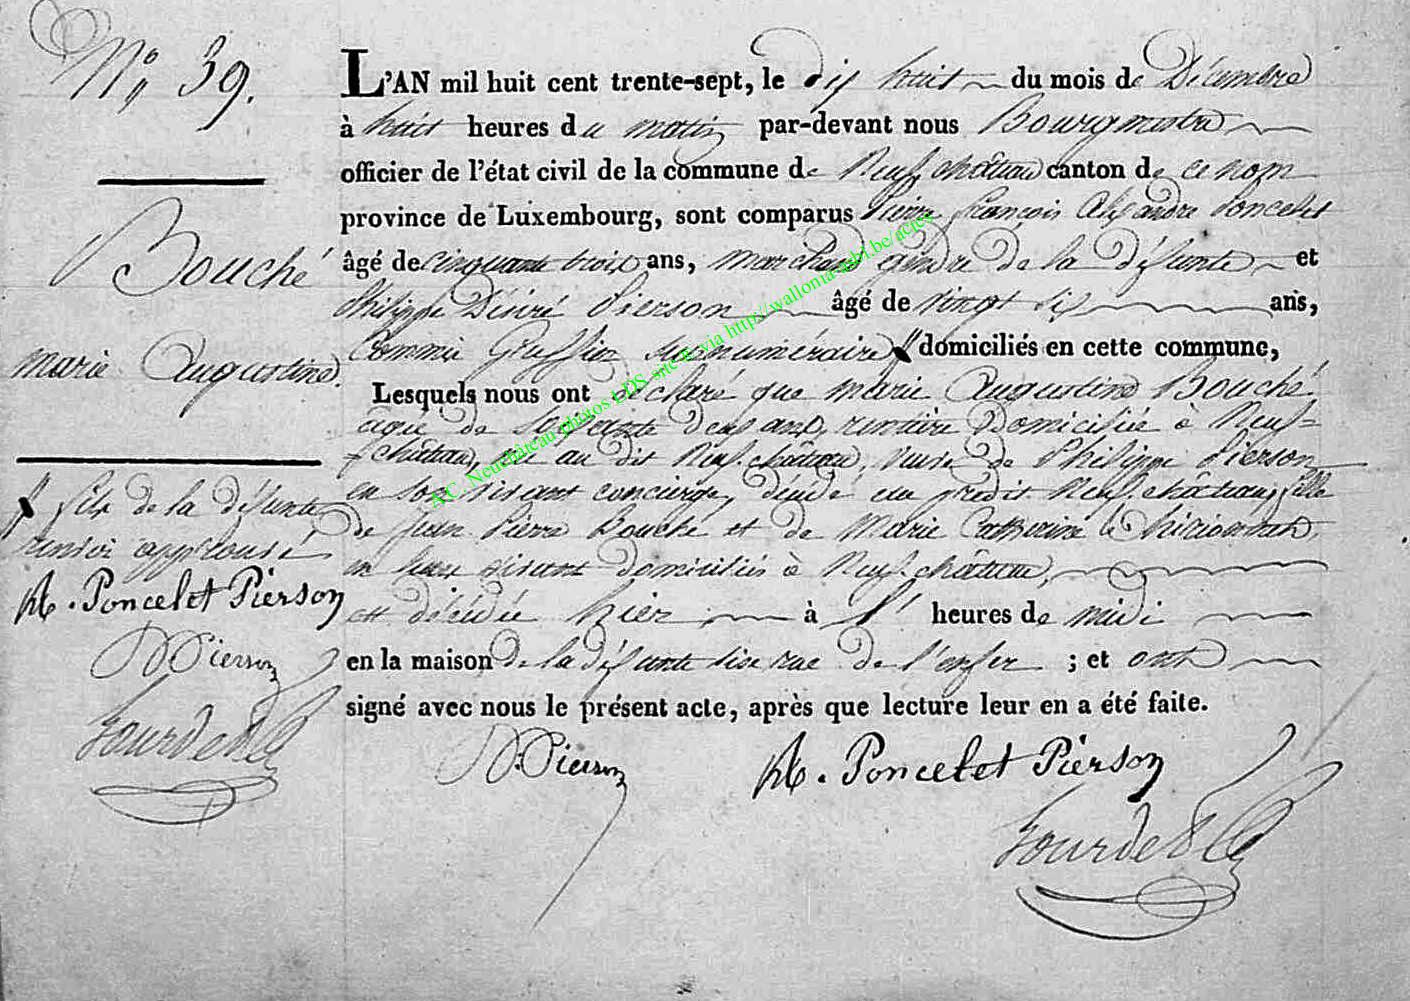 N° 39.
Bouché
marie Augustine.
fils de la défunte
renvoi approuvé
A. Poncelet Pierson
D Pierson
L'AN mil huit cent trente-sept, le dix huit du mois de Décembre
à huit heures du matin par-devant nous Bourgmestre
officier de l'état civil de la commune de Neufchâteau canton de ce nom
province de Luxembourg, sont comparus Pierre françois Alexandre Poncelet
âgé de cinquante trois ans, marchand gendre de la défunte et
Philippe Désiré Pierson âgé de vingt six ans,
Commis Greffier surnuméraire domiciliés en cette commune,
Lesquels nous ont déclaré que marie Augustine Bouché
agée de soixante deux ans, rentière Domiciliée à Neuf-
château, née au dit Neufchâteau, veuve de Philippe Pierson
en son vivant concierge, décédé au prédit Neufchâteau, fille
de Jean Pierre Bouché et de Marie Catherine
en leur vivant domiciliés à Neufchâteau,
est décédée hier à 1' heures de midi
en la maison de la défunte sise rue de l'enfer ; et ont
signé avec nous le présent acte, après que lecture leur en a été faite.
D. Pierson A. Poncelet Pierson
AC Neuchâteau photos LDS site & via http://wallonia-asbl.be/actes